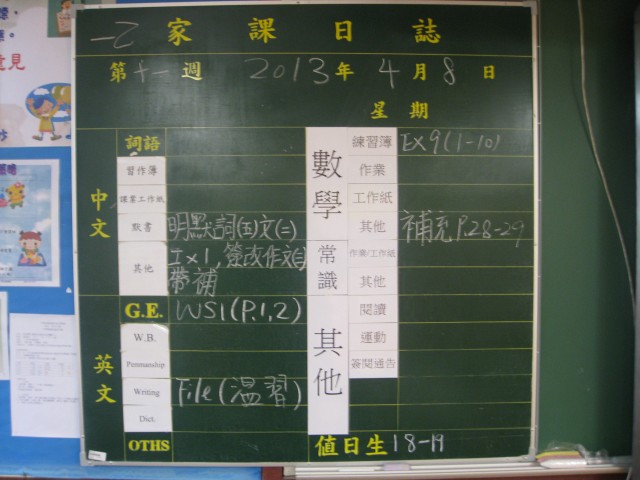 一乙 家課日誌
第十一週 2013年4月8日
星期
中文
詞語
習作簿
課業工作紙
默書 明默詞(五)文(二)
其他
簽改作文
帶補
英文
G.E. WS1(P.1,2)
W.B.
Penmanship
Writing File(溫習)
Dict.
OTHS
數學
練習簿 Ex9(1-10)
作業
工作紙
其他 補充P.28-29
常識
作業/工作紙
其他
其他
閱讀
運動
簽閱通告
值日生 18-19